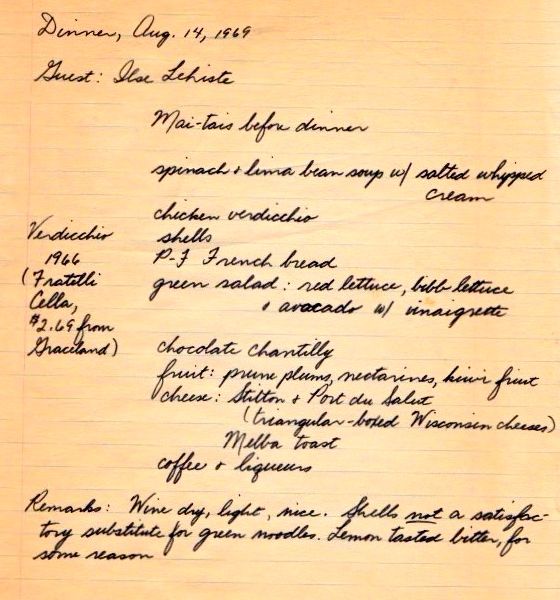 Dinner, Aug. 14, 1969
Guest: Ilse Lehiste
Mai-tais before dinner
spinach + lima bean soup w/ salted whipped
cream
chicken verdicchio
shells
P-F French bread
green salad: red lettuce, bibb lettuce
+ avocado w/ vinaigrette
Verdicchio
1966
(Fratelli
Cella,
$2.69 from
Graceland)
chocolate chantilly
fruit: prune plums, nectarines, kiwi fruit
cheese: Stilton + Port du Salut
(triangular-boxed Wisconsin cheeses)
Melba toast
coffee + liqueurs
Remarks: Wine dry, light, nice. Shells not a satisfac-
tory substitute for green noodles. Lemon tasted bitter, for
some reason